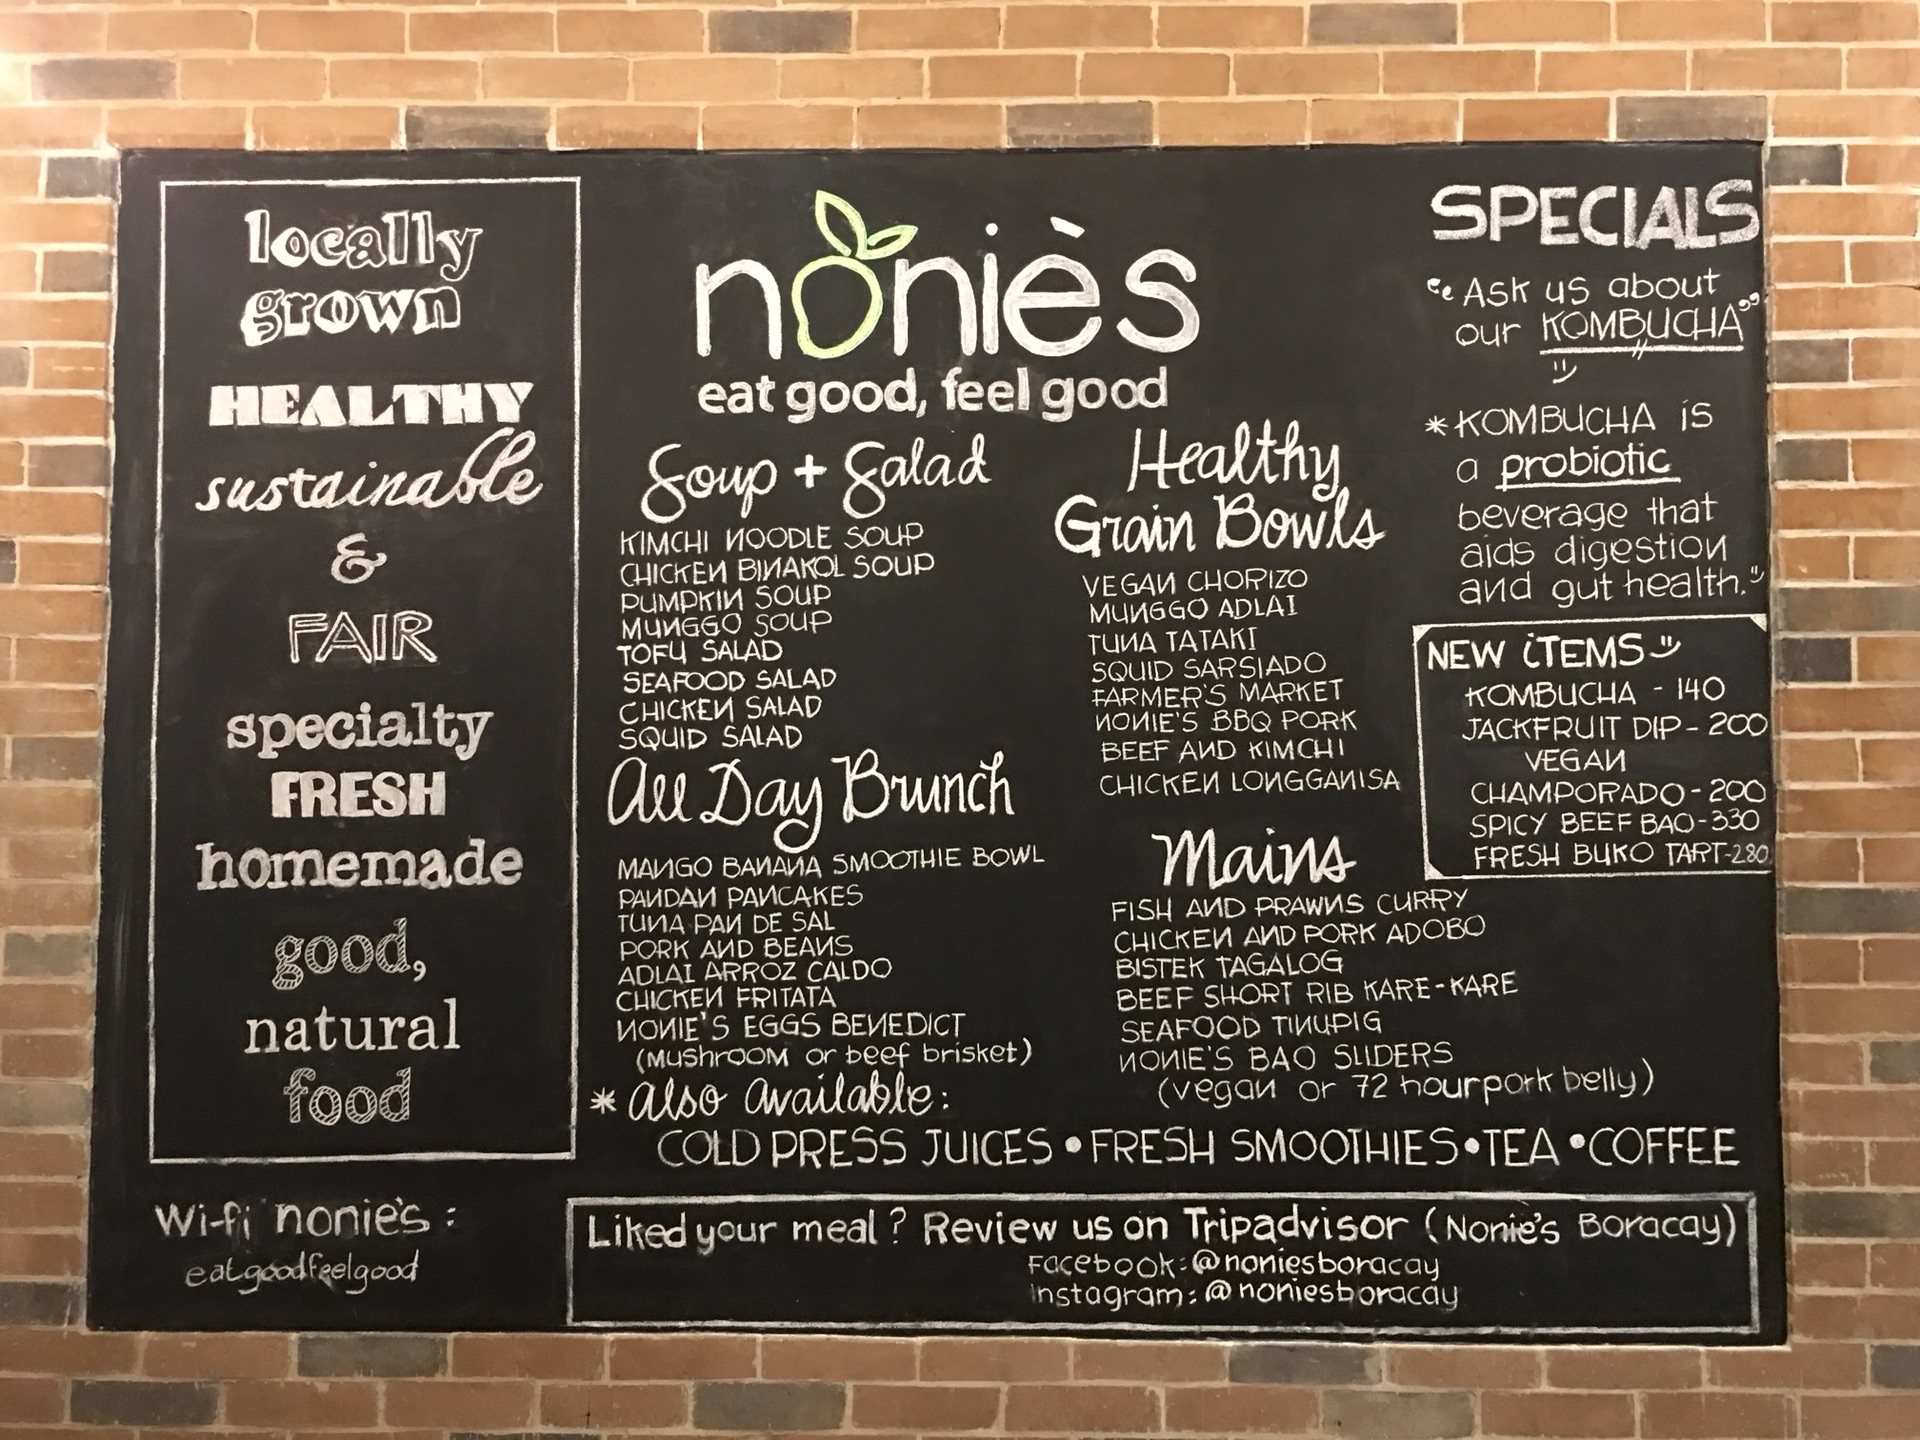 locally
grown
HEALTHY
sustainable
&
FAIR
specialty
FRESH
homemade
good,
natural
food
Wi-fi nonie's :
eatgoodfeelgood
noniès
eat good, feel good
Soup + Salad
KIMCHI NOODLE SOUP
CHICKEN BINAKOL SOUP
PUMPKIN SOUP
MUNGGO SOUP
TOFU SALAD
SEAFOOD SALAD
CHICKEN SALAD
SQUID SALAD
All Day Brunch
MANGO BANANA SMOOTHIE BOWL
PANDAN PANCAKES
TUNA PAN DE SAL
PORK AND BEANS
ADLAI ARROZ CALDO
CHICKEN FRITATA
NONIE'S EGGS BENEDICT
(Mushroom or beef brisket)
Healthy
Grain Bowls
VEGAN CHORIZO
MUNGGO ADLAI
TUNA TATAKI
SQUID SARSIADO
FARMER'S MARKET
NONIE'S BBQ PORK
BEEF AND KIMCHI
CHICKEN LONGGANISA
Mains
FISH AND PRAWNS CURRY
CHICKEN AND PORK ADOBO
BISTEK TAGALOG
BEEF SHORT RIB KARE-KARE
SEAFOOD TINUPIG
NONIE'S BAO SLIDERS
(vegan or 72 hour pork belly)
* Also Available:
COLD PRESS JUICES • FRESH SMOOTHIES • TEA • COFFEE
SPECIALS
"Ask us about
our KOMBUCHA"
* KOMBUCHA is
a probiotic
beverage that
aids digestion
and gut health."
NEW iTEMS
KOMBUCHA - 140
JACKFRUIT DIP - 200
VEGAN
CHAMPORADO - 200
SPICY BEEF BAO - 330
FRESH BUKO TART - 280
Liked your meal? Review us on Tripadvisor (Nonie's Boracay)
Facebook: @noniesboracay
Instagram: @noniesboracay